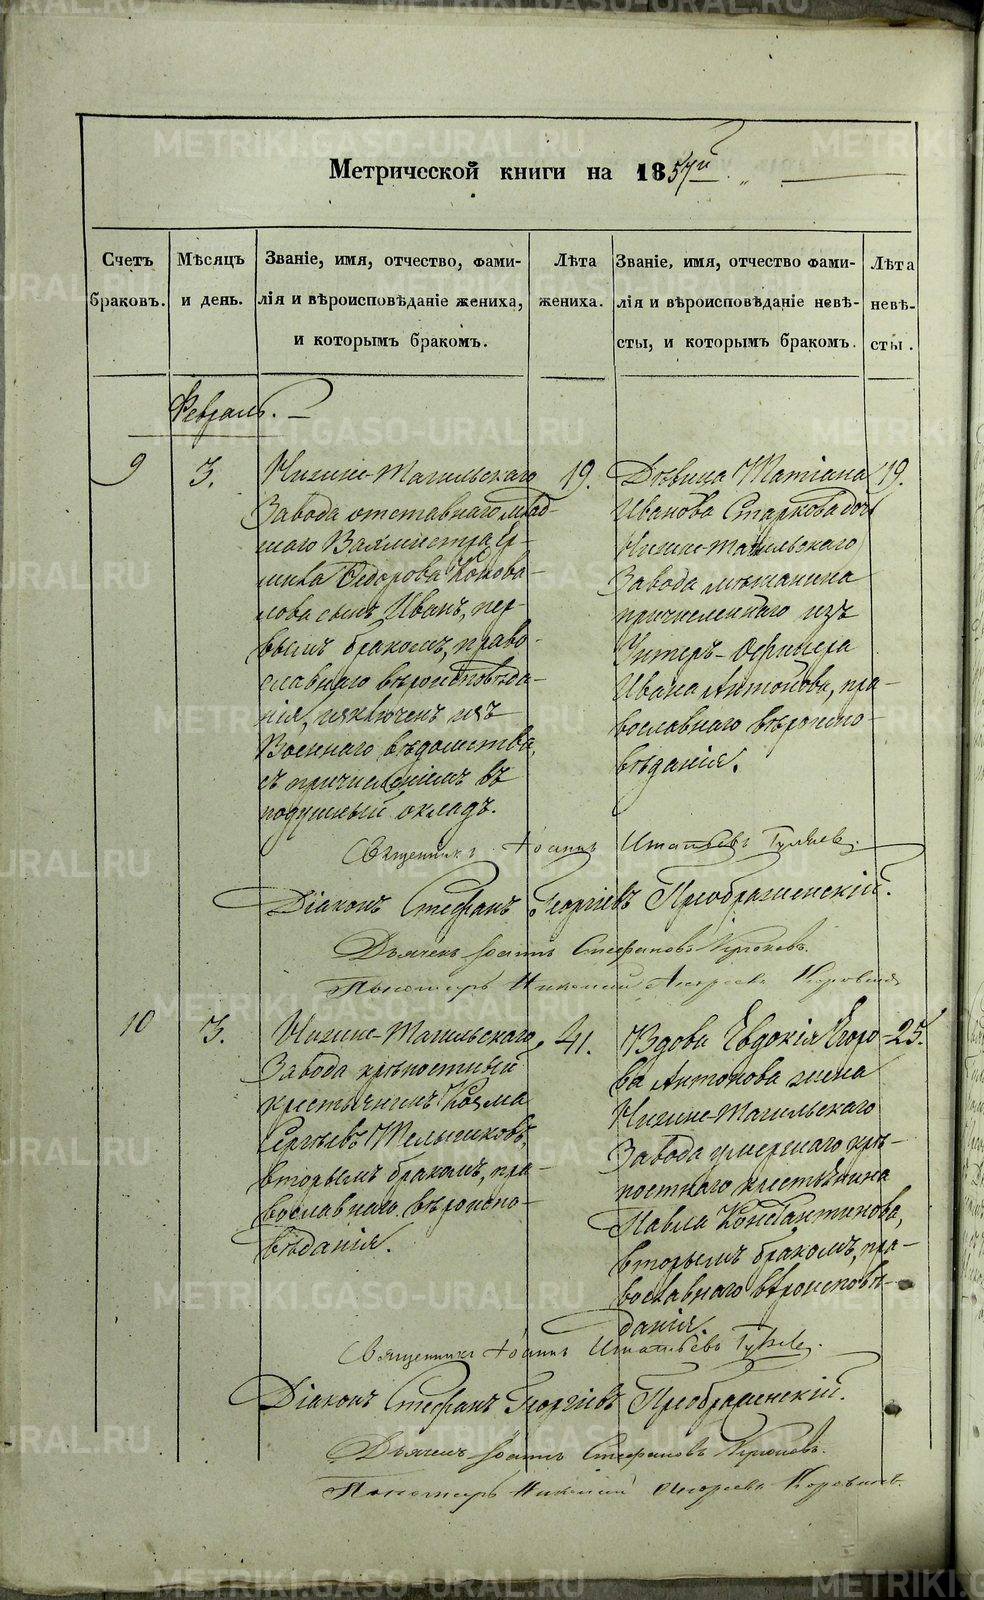 METRIKI.GASO-URAL.RU
Метрической книги на 1857й.
Счетъ браковъ.
Мѣсяцъ и день.
Званіе, имя, отчество, фами-
лія и вѣроисповѣданіе жениха,
и которымъ бракомъ.
Лѣта жениха.
Званіе, имя, отчество фами-
лія и вѣроисповѣданіе невѣ-
сты, и которымъ бракомъ.
Лѣта невѣ-
сты.
Февраль.
9
3.
Нижне-Тагильскаго
Завода отставнаго млад-
шаго Вахмистра Ер-
мила Ѳедорова Конова-
лова сынъ Иванъ, пер-
вымъ бракомъ, право-
славнаго вѣроисповѣда-
нія, изключенъ изъ
Военнаго вѣдомства,
съ причисленіемъ въ
подушный окладъ.
19.
Дѣвица Татіана
Иванова Старкова дочь
Нижне-Тагильскаго
Завода мѣщанина
причисленнаго изъ
Унтеръ-Офицера
Ивана Антонова, пра-
вославнаго вѣроиспо-
вѣданія.
19.
Священникъ Іоаннъ Игнатьевъ
Діаконъ Стефанъ Георгіевъ Преображенскій.
Дьячекъ Іоаннъ Стефановъ
Пономарь Николай Андреевъ
10
3.
Нижне-Тагильскаго
Завода крѣпостный
крестьянинъ Козма
Сергѣевъ Мельниковъ,
вторымъ бракомъ, пра-
вославнаго вѣроиспо-
вѣданія.
41.
Вдова Евдокія Егоро-
ва Антонова жена
Нижне-Тагильскаго
Завода умершаго крѣ-
постнаго крестьянина
Павла Константинова,
вторымъ бракомъ, пра-
вославнаго вѣроисповѣ-
данія.
25.
Священникъ Іоаннъ Игнатьевъ
Діаконъ Стефанъ Георгіевъ Преображенскій.
Дьячекъ Іоаннъ Стефановъ
Пономарь Николай Андреевъ